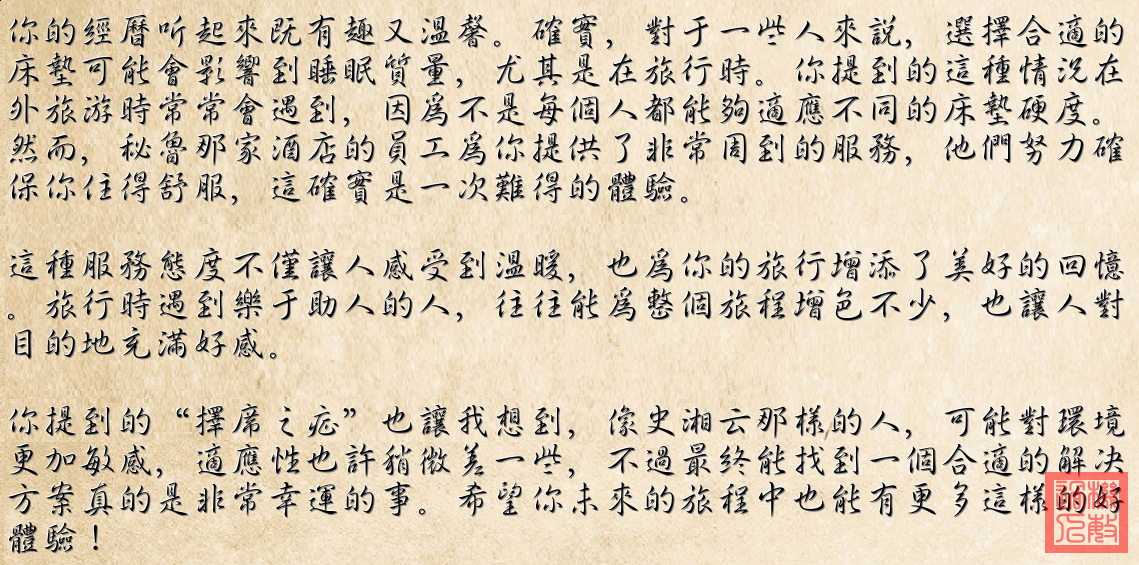 你的經曆听起來既有趣又溫馨。確實，對于一些人來説，選擇合適的
床墊可能會影響到睡眠質量，尤其是在旅行時。你提到的這種情況在
外旅游時常常會遇到，因爲不是每個人都能夠適應不同的床墊硬度。
然而，秘魯那家酒店的員工爲你提供了非常周到的服務，他們努力確
保你住得舒服，這確實是一次難得的體驗。
這種服務態度不僅讓人感受到溫暖，也爲你的旅行增添了美好的回憶
。旅行時遇到樂于助人的人，往往能爲整個旅程增色不少，也讓人對
目的地充滿好感。
你提到的“擇席之症”也讓我想到，像史湘云那樣的人，可能對環境
更加敏感，適應性也許稍微差一些，不過最终能找到一個合適的解决
方案真的是非常幸運的事。希望你未來的旅程中也能有更多這樣的好
體驗！